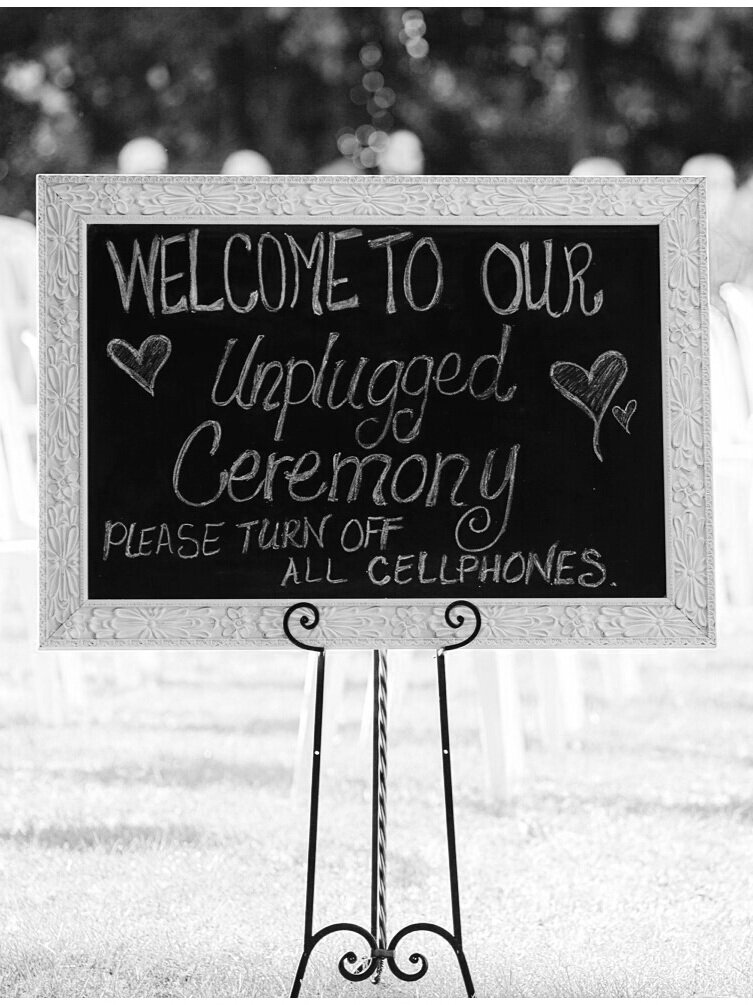 WELCOME TO OUR
Unplugged
Ceremony
PLEASE TURN OFF
ALL CELLPHONES.